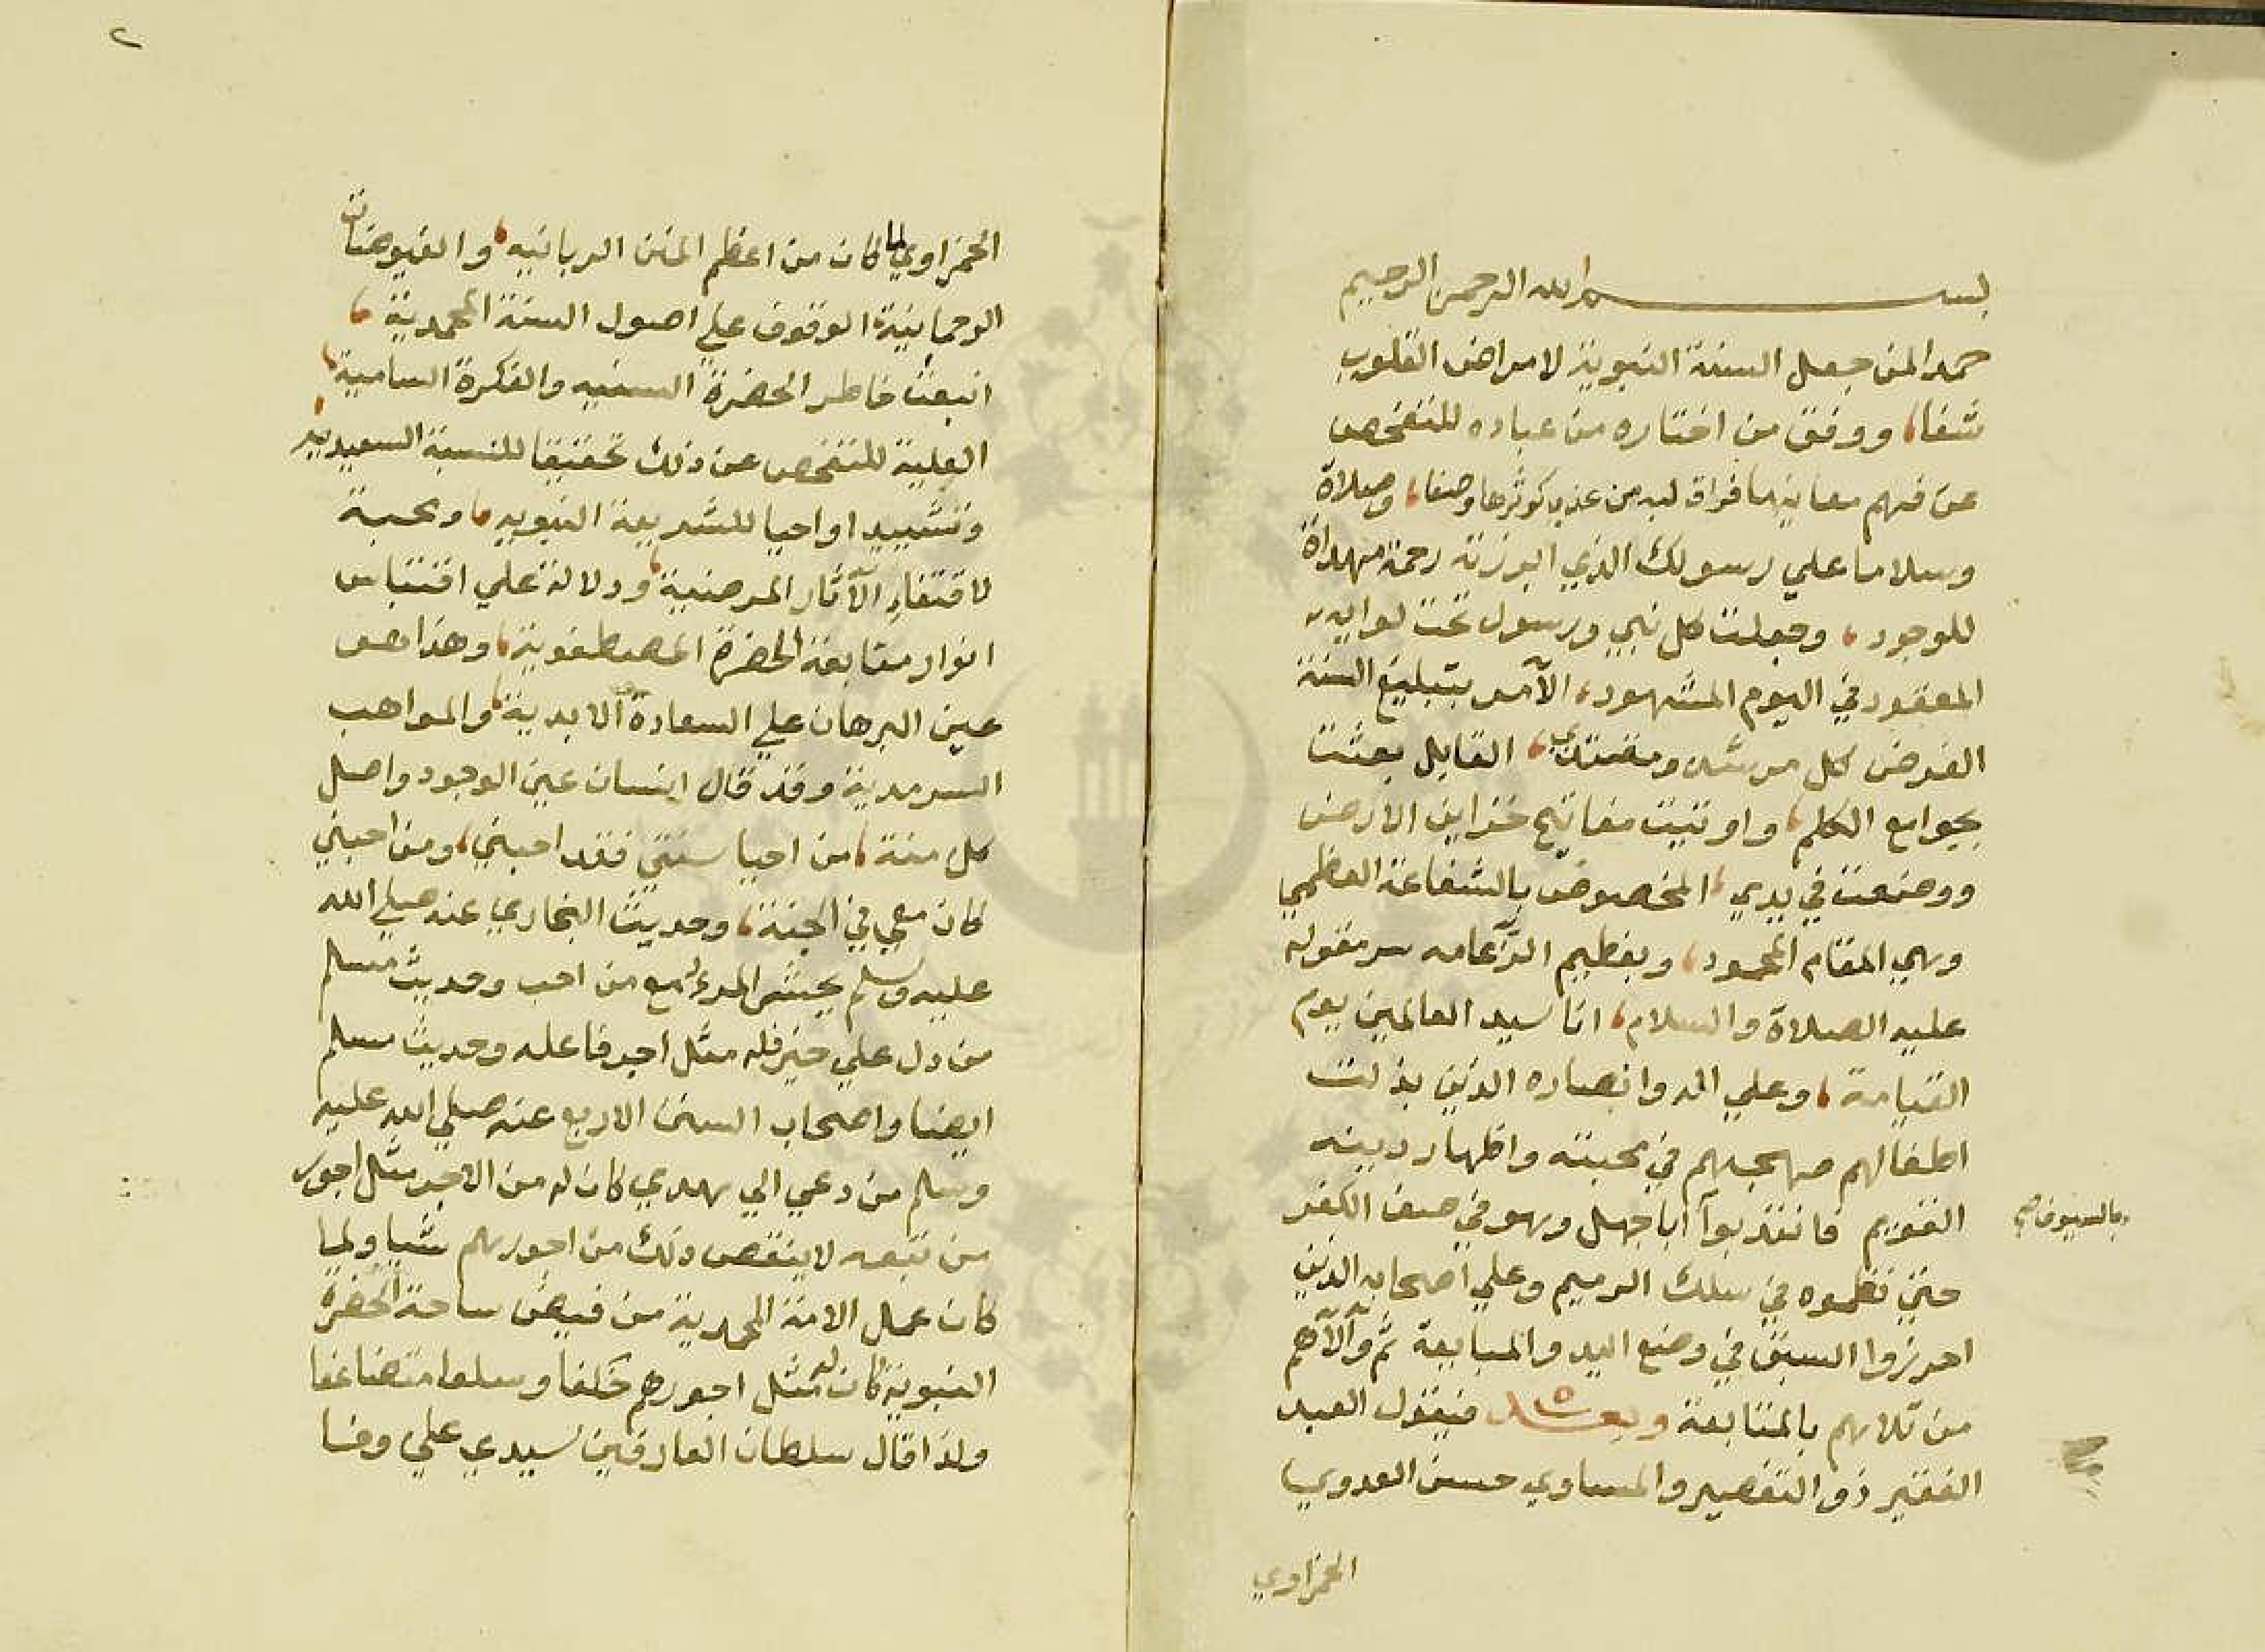 بسم الله الرحمن الرحيم
حمدا لمن جعل السنة النبوية لامراض القلوب
شفا، ووفق من اختاره من عباده للتفحص
عن فهم معانيها فراق لبه من عذب كوثرها وصفا، وصلاة
وسلاما علي رسولك الذي ابرزته رحمة مهداة
للوجود، وجعلت كل نبي ورسول تحت لوايه
المعقود في اليوم المشهود، الآمر بتبليغ السنة
الغرض كل مرشد ومقتدي، القايل بعثت
بجوامع الكلم، واوتيت مفاتيح خزاين الارض
ووضعت في يدي، المخصوص بالشفاعة العظمي
وهي المقام المحمود، وبعظيم الزعامه سر مقوله
عليه الصلاة والسلام، انا سيد العالمين يوم
القيامة، وعلي اله وانصاره الذين بذلت
اطفالهم مهجهم في محبته واظهار دينه
القويم فانتدبوا آبا جهل وهو في صف الكفر
بالسيوف
حتي نظموه في سلك الرميم وعلي اصحابه الذين
احرزوا السبق في وضع اليد والمبايعة ثم والآهم
من تلاهم بالمتابعة وبعد فيقول العبد
الفقير ذو التقصير والمساوي حسن العدوي
الحمزاوي
٢
الحمزاوي لما كان من اعظم المنن الربانيه، والفيوضات
الرحمانية، الوقوف علي اصول السنة المحمدية،
انبعث خاطر الحضرة السنيه والفكرة السامية،
العلية للتفحص عن ذلك تحقيقا للنسبة السعيديه
وتشييدا واحيا للشريعة النبويه، ومحبة
لاقتفاء الآثار المرضية، ودلالة علي اقتباس
انوار متابعة الحضرة المصطفوية، وهذا هو
عين البرهان علي السعادة الابدية، والمواهب
السرمدية وقد قال انسان عين الوجود واصل
كل منة، من احيا سنتي فقد احبني، ومن احبني
كان معي في الجنة، وحديث البخاري عنه صلي الله
عليه وسلم يحشر المرء مع من احب وحديث مسلم
من دل علي خير فله مثل اجر فاعله وحديث مسلم
ايضا واصحاب السنن الاربع عنه صلي الله عليه
وسلم من دعي الي هدي كان له من الاجر مثل اجور
من تبعه لا ينقص ذلك من اجورهم شيا ولما
كان عمل الامة المحمدية من فيض ساحة الحضرة
النبوية كان له مثل اجورهم خلفا وسلفا متضاعفا
ولذا قال سلطان العارفين سيدي علي وفا